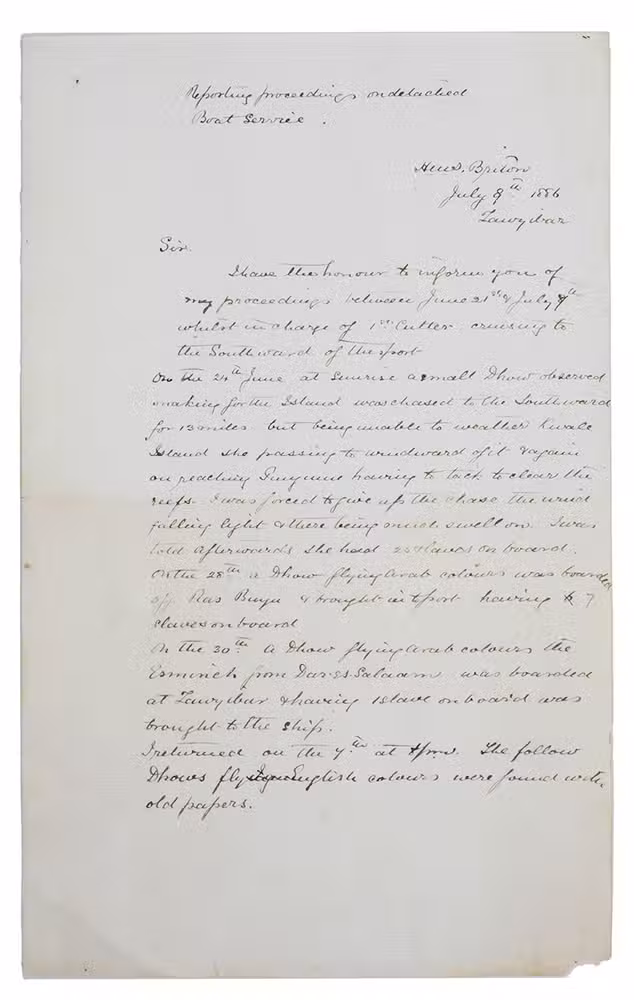 Reporting proceedings on detached
Boat Service.
H.M.S. Briton
July 9th 1886
Zanzibar
Sir.
I have the honour to inform you of
my proceedings between June 21st & July 7th
whilst in charge of 1st Cutter cruising to
the Southward of the port
On the 24th June at Sunrise a small Dhow observed
making for the Island was chased to the Southward
for 13 miles but being unable to weather Kwale
Island she passing to windward of it & again
on reaching having to tack to clear the
reefs I was forced to give up the chase the wind
falling light & there being much swell on. I was
told afterwards she had slaves on board.
On the 28th a Dhow flying Arab colours was boarded
off Ras & brought into port having 7
slaves on board
On the 30th a Dhow flying Arab colours the
from Dar-es-Salaam was boarded
at Zanzibar & having 1 slave on board was
brought to the ship.
I returned on the 7th at pm. The follow
Dhows flying English colours were found with
old papers.